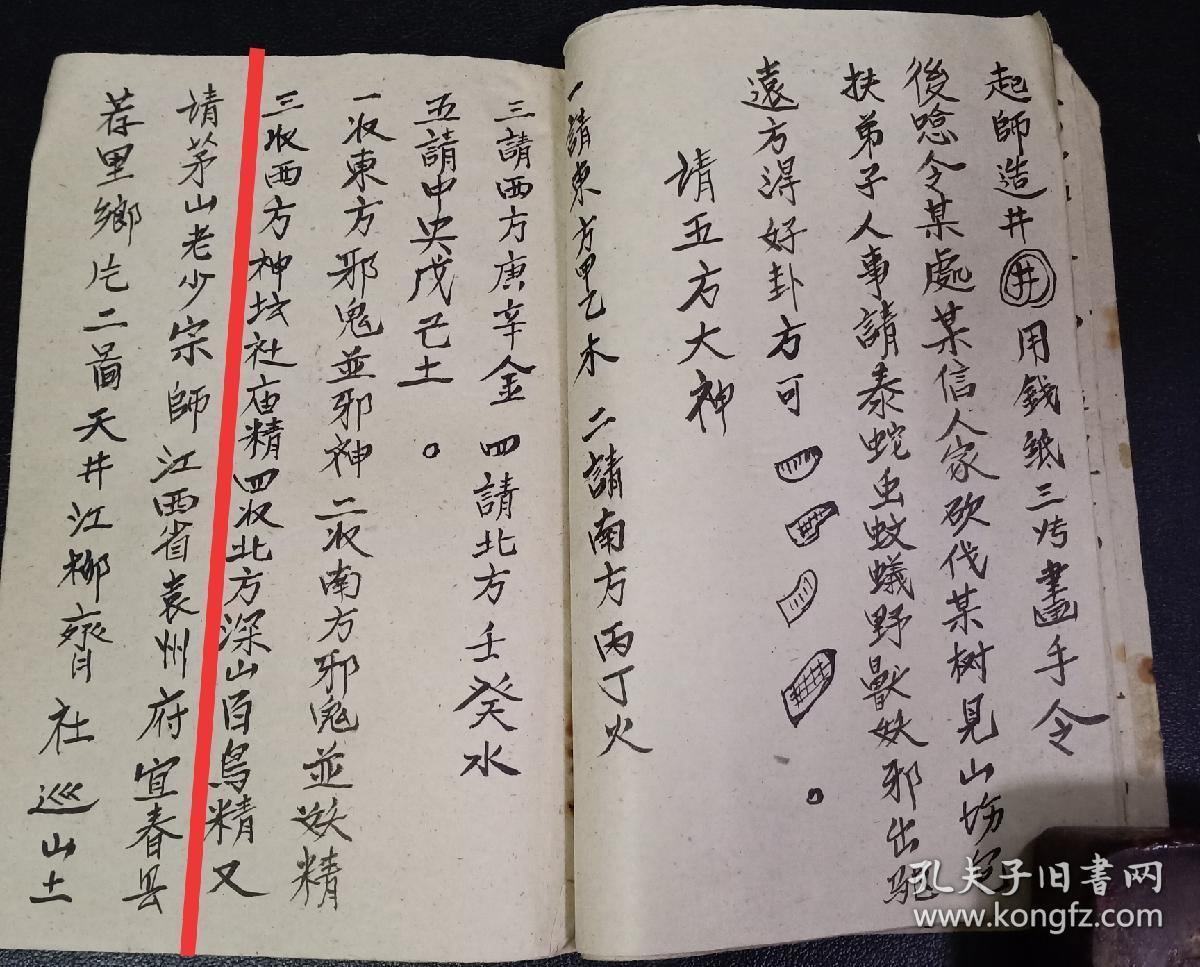 起師造井㊉井用錢紙三烤畫手令
後唸令某處某信人家砍伐某树見山坊
扶弟子人事請泰蛇虫蚊蟻野獸妖邪出
遠方得好卦方可
請五方大神
一請東方甲乙木 二請南方丙丁火
三請西方庚辛金 四請北方壬癸水
五請中央戊己土。
一收東方邪鬼並邪神二收南方邪鬼並妖精
三收西方神坛社庙精四收北方深山百鸟精又
请茅山老少宗師江西省袁州府宜春县
荐里鄉 二啚天井江柳齊社巡山土
孔夫子旧书网
www.kongfz.com